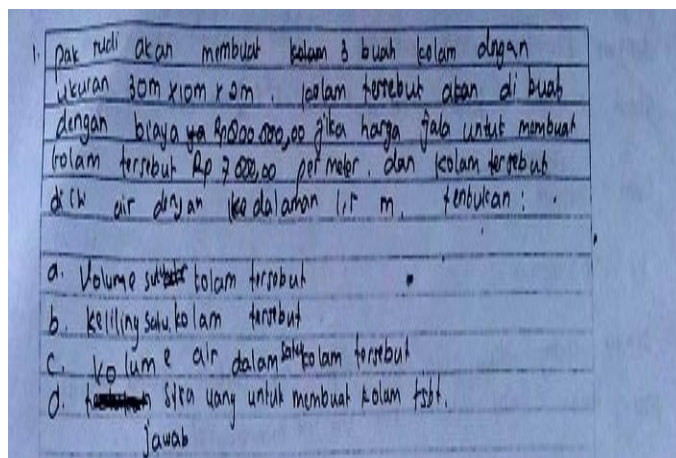 1. pak rudi akan membuat kolam 3 buah kolam dengan
ukuran 30m x 10m x 2m. kolam tersebut akan di buat
dengan biaya jika harga jala untuk membuat
kolam tersebut Rp 7 000,00 per meter. dan kolam tersebut
di isi air dengan kedalaman 1,5 m. tentukan :
a. Volume kolam tersebut
b. keliling satu kolam tersebut
c. Volume air dalam satu kolam tersebut
d. sisa uang untuk membuat kolam tsbt.
jawab